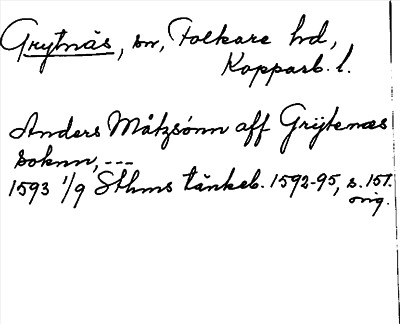 Grytnäs, sn, Folkare hd,
Kopparb. l.
Anders Måtzsonn aff Grijtenæs
soknn, ---
1593 1/9 Sthms tänkeb. 1592-95, s. 157.
orig.